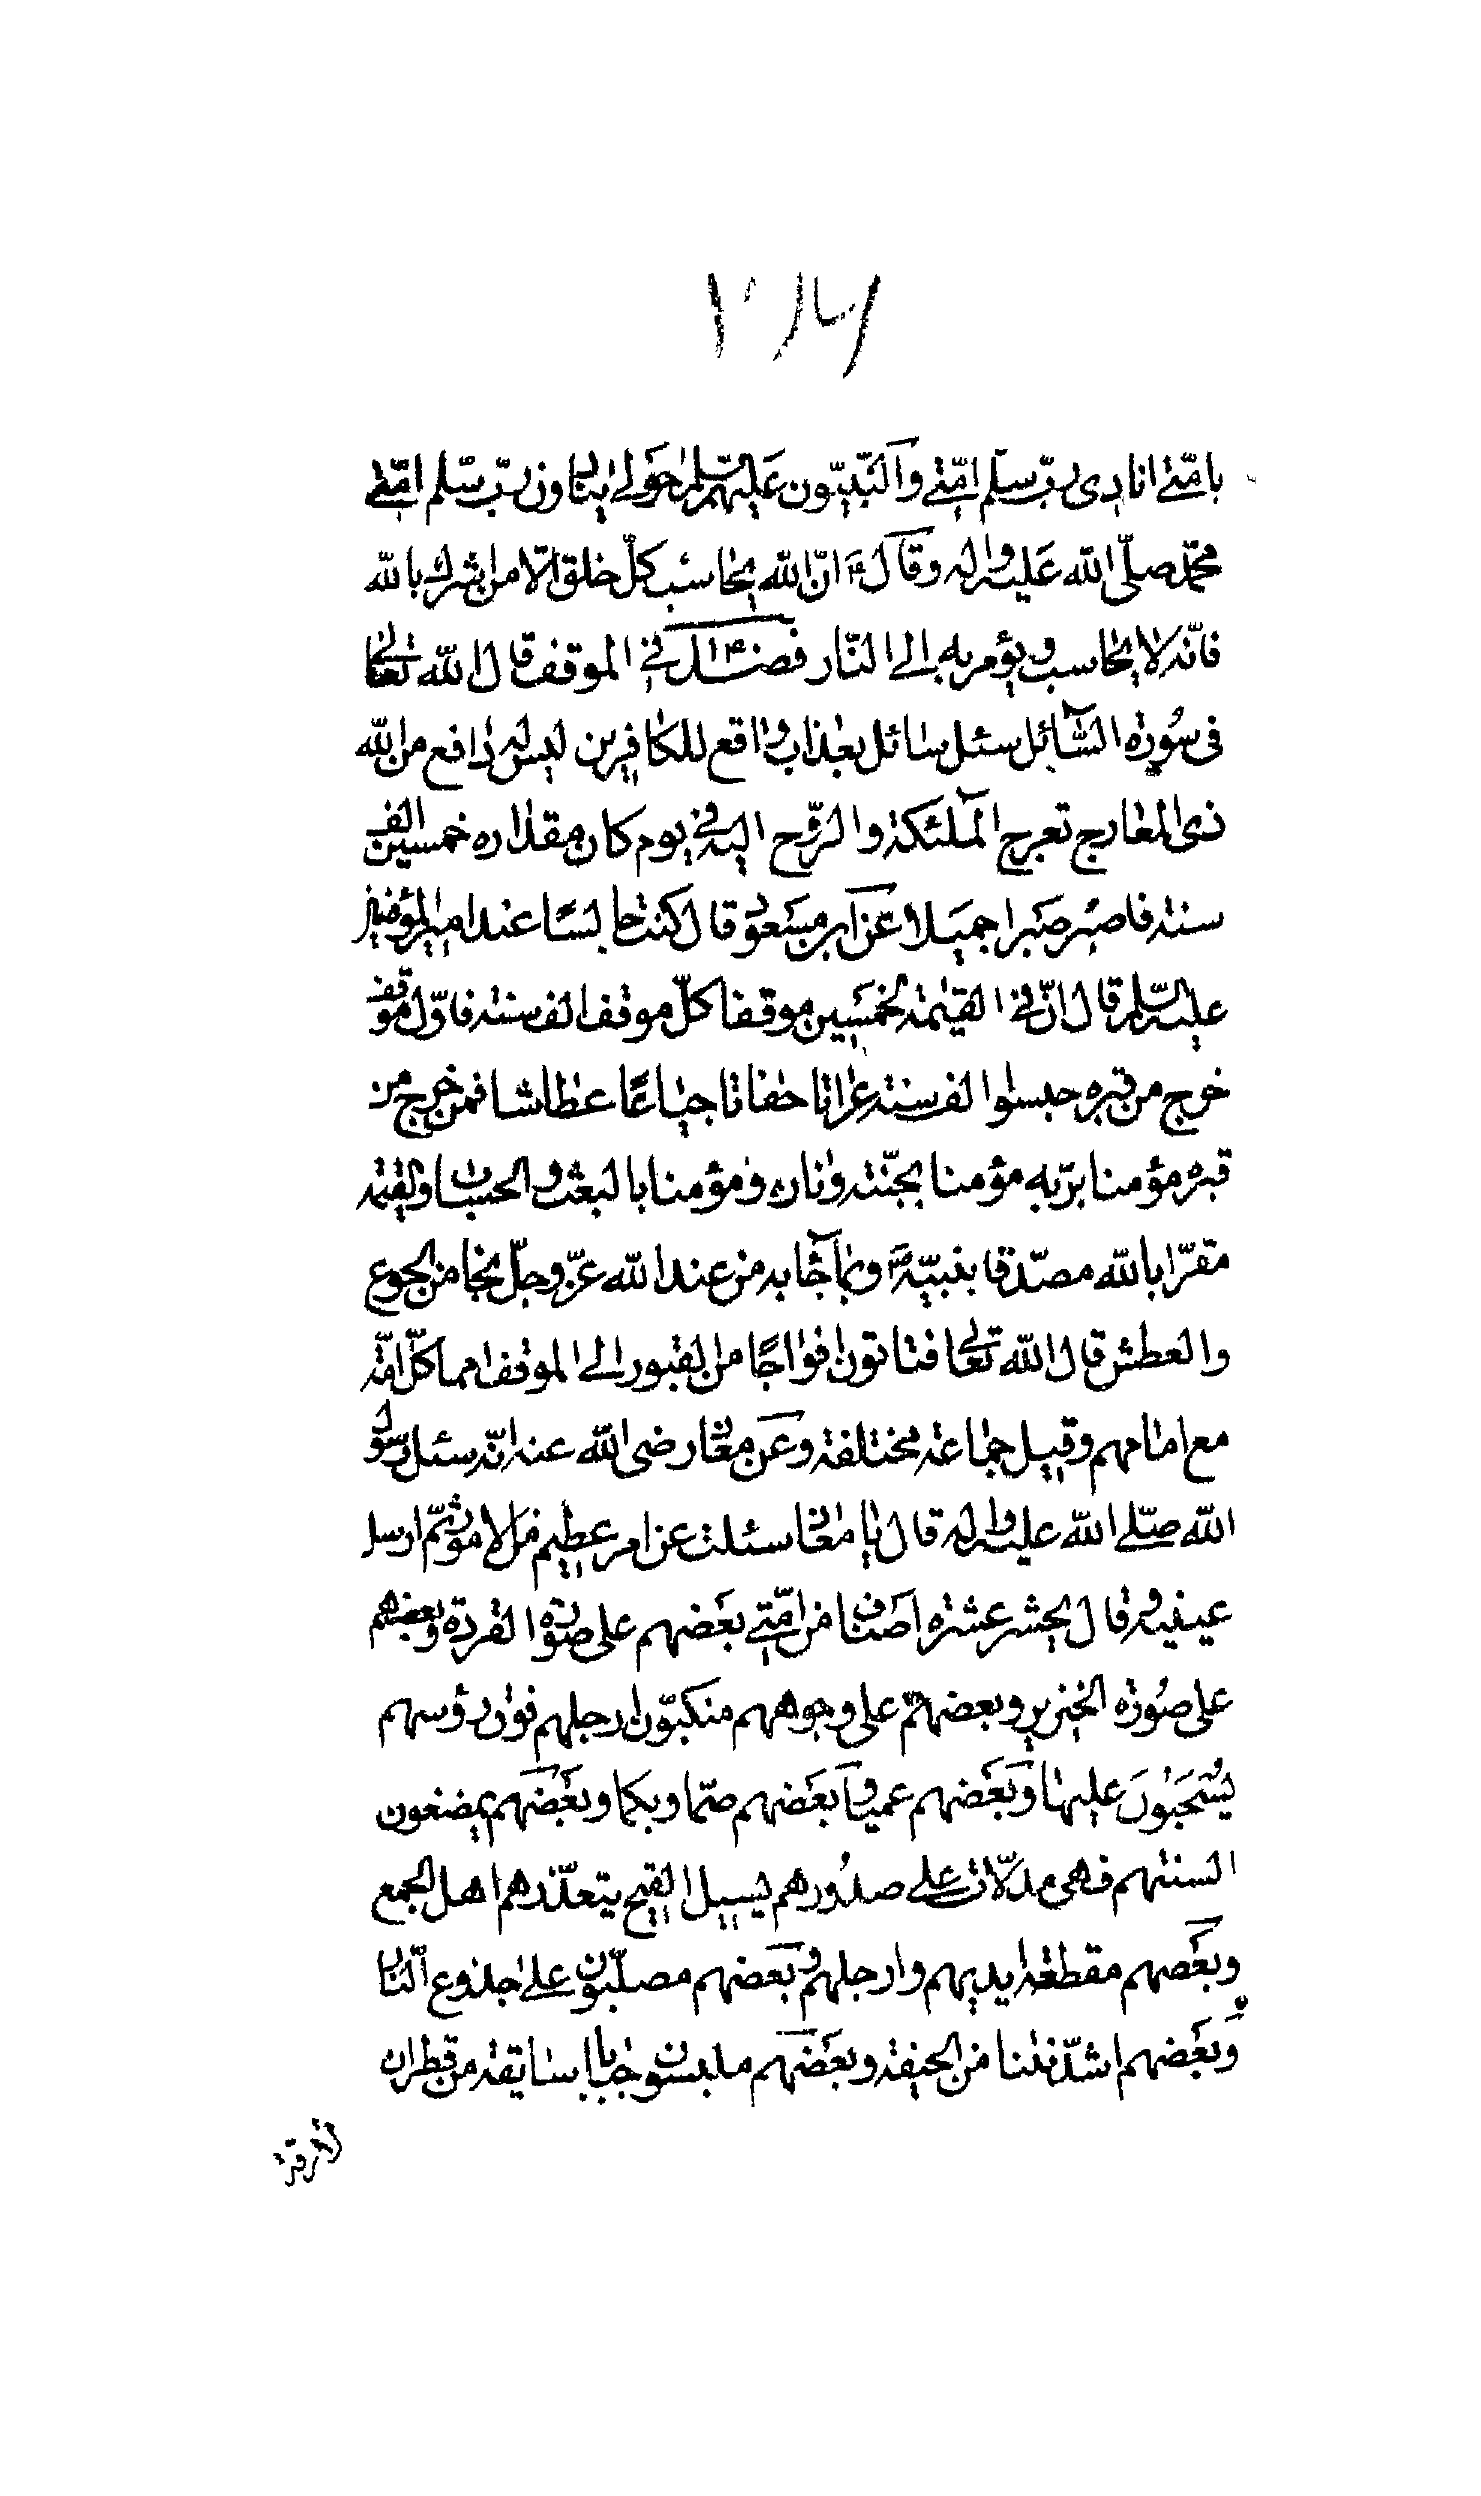 بامّتی انادی ربّ سلّم امّتی والنّبیّون علیهم السّلم حولی ینادون ربّ سلّم امّتی
محمّد صلّی الله علیه واله وقال ٤ انّ الله یحاسب کلّ خلق الّا من اشرك بالله
فانّه لا یحاسب ویؤمر به الی النّار فصل فی الموقف قال الله تعالی
فی سُورة السّائل سئل سائل بعذاب واقع للکافرین لیس له دافع من الله
ذی المعارج تعرج الملئکة والرّوح الیه فی یوم کان مقداره خمسین الف
سنة فاصبر صبرا جمیلا عن ابن مسعود قال کنت جالسًا عند امیرالمؤمنین
علیه السّلم قال انّ فی القیمة لخمسین موقفا کلّ موقف الف سنة فاوّل موقف
خرج من قبره حبسوا الف سنة عراتا حفاتا جیاعًا عطاشا فمن خرج من
قبره مؤمنا بربّه مؤمنا بجنّته وناره ومؤمنا بالبعث والحساب والقیمة
مقرّا بالله مصدّقا بنبیّه وبما جآء به من عند الله عزّ وجلّ نجا من الجوع
والعطش قال الله تعالی فتاتون افواجًا من القبور الی الموقف امما کلّ امّة
مع امامهم وقیل جماعة مختلفة وعن معاذ رضی الله عنه انّه سئل رسول
الله صلّی الله علیه واله قال یا معاذ سئلت عن امر عظیم من الامور ثمّ ارسل
عینیه وقال یحشر عشرة اصناف من امّتی بعضهم علی صورة القردة وبعضهم
علی صُورة الخنزیر وبعضهم علی وجوههم منکبّون ارجلهم فوق رؤسهم
یُسحَبُونَ علیها وبعضهم عمیا وبعضهم صمّا وبکما وبعضهم یمضغون
السنتهم فهی مدلّات علی صدُورهم یسیل القیح یتعذّرهم اهل الجمع
وبعضهم مقطعة ایدیهم وارجلهم وبعضهم مصلّبون علی جذوع النّار
وبعضهم اشدّ نتنا من الجیفة وبعضهم ملبسون جبابا سابقة من قطران
لازقة